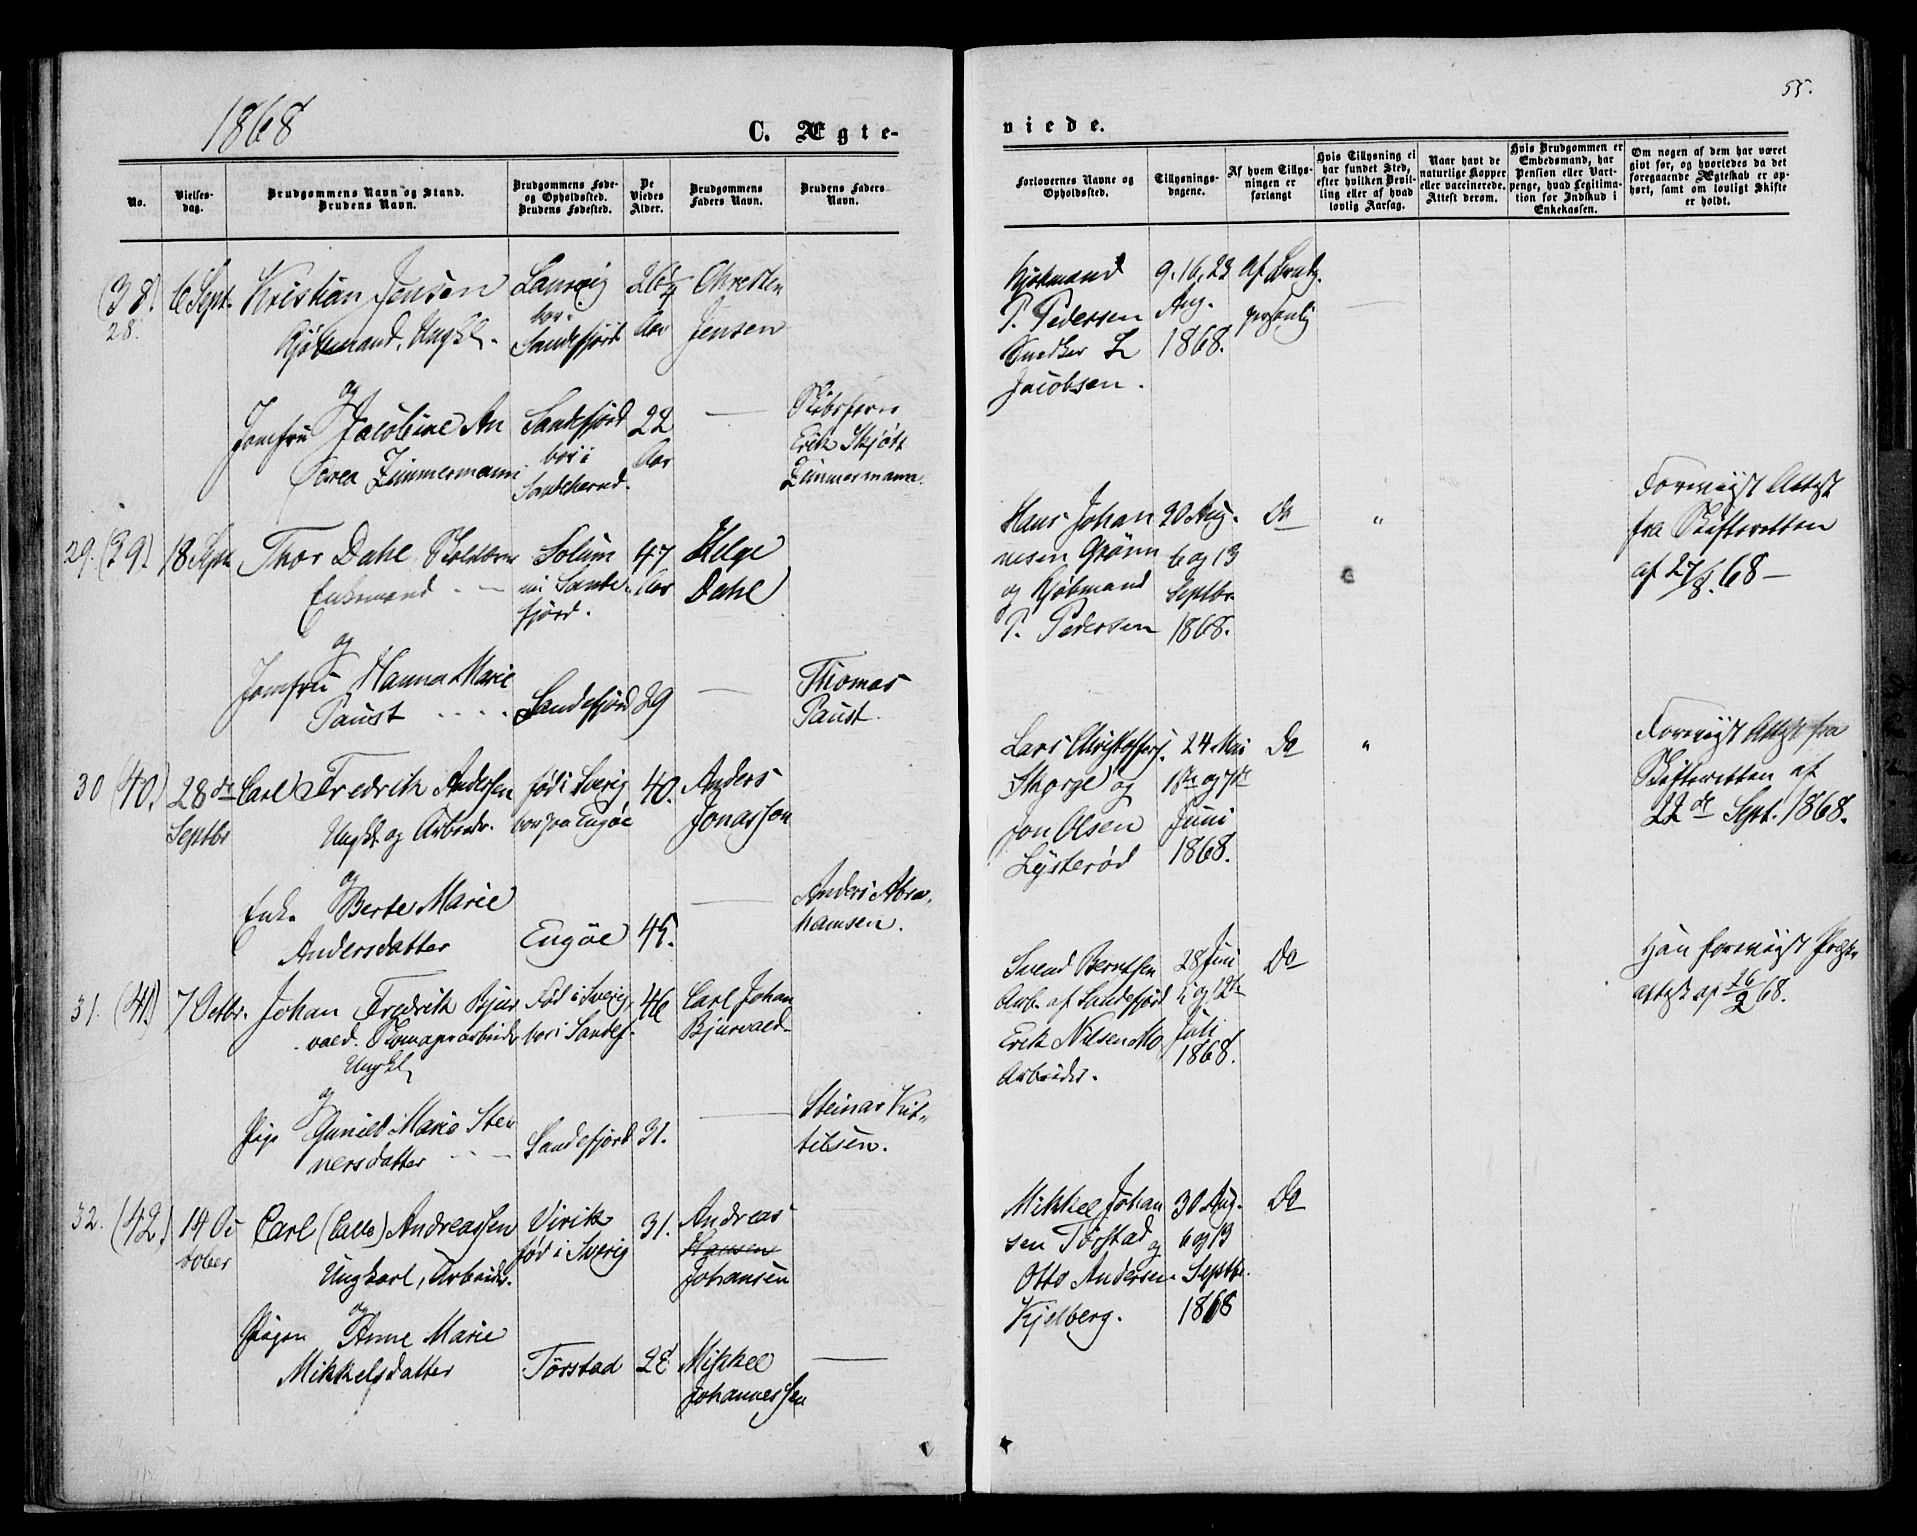 1868
55.
C. Ægte-
viede.
No.
Vielses-
dag.
Brudgommens Navn og Stand.
Brudens Navn.
Brudgommens Føde-
og Opholdssted.
Brudens Fødested.
De
Viedes
Alder.
Brudgommens
Faders Navn.
Brudens Faders
Navn.
Forlovernes Navne og
Opholdssted.
Tillysnings-
dagene.
Af hvem Tillys-
ningen er
forlangt
Hvis Tillysning ei
har fundet Sted,
efter hvilken Bevil-
ling eller af hvad
lovlig Aarsag.
Naar havt de
naturlige Kopper
eller vaccinerede.
Attest derom.
Hvis Brudgommen er
Embedsmand, har
Pension eller Vart-
penge, hvad Legitima-
tion for Indskud i
Enkekassen.
Om nogen af dem har været
givt før, og hvorledes da det
foregaaende Ægteskab er op-
hørt, samt om lovligt Skifte
er holdt.
(38.)
28.
6 Sept.
Kristian Jensen
Kjøbmand, Ungkl.
Laurvig
bor i
Sandefjord
26 1/4
Aar
Christen
Jensen
Kjøbmand
P. Pedersen
Snedker L
Jacobsen.
9. 16, 23
Aug.
1868.
Af Brudg.
personlig
og
Jomfru Jacobine An
Zimmermann
Sandefjord
bor i
Sandeherred.
22
Aar
Skibsfører
Erik Skjøtt
Zimmermann.
29. (39)
18 Sept.
Thor Dahl
Enkemand
Solum
Sande
fjord.
47
Aar
Helge
Dahl
Hans Johan
nesen Grønn
og Kjøbmand
P. Pedersen
20 Aug.
6 og 13
Septbr
1868.
Do
"
Foreviist Attest
fra Skifteretten
af 27/8. 68 -
og
Jomfru Hanna Marie
Paust
Sandefjord
29
Thomas
Paust.
30 (40.)
28de
Septbr
Carl Fredrik Andersen
Ungkl og Arbeider.
fød i Sverig
bor paa Engøe
40.
Anders
Jonasson
Lars Christoffersj.
Skorge og
Jon Olsen
Lysterød
24 Mai
1ste og 7de
Juni
1868.
Do
"
Foreviist Attest fra
Skifteretten af
22de Sept. 1868.
og
Enke Berte Marie
Andersdatter
Engøe
45.
Anders Abra-
hamsen.
31. (41)
7 Octbr.
Johan Fredrik Bjur
vald.
Ungkl
Fød i Sverig,
bor i Sandef.
46
Carl Johan
Bjurvald
Svend Berntsen
Arb. af Sandefjord
Erik Nilsen Mo
Arbeider.
28 Juni
5 og 12te
Juli
1868.
Do
Han foreviist
attest af 26/2 68.
og
Pige Gunild Marie Ste
nersdatter
Sandefjord
31.
Steinar Kit-
tilsen.
32. (42.)
14 Oc
tober
Carl (Calle) Andreassen
Ungkarl, Arbeider.
Virik
fød i Sverig
31.
Andreas
Hansen
Johansen
Mikkel Johan
sen Torstad og
Otto Andersen
Kjelberg.
30 Aug.
6 og 13
Septbr.
1868
Do
og
Pigen Anne Marie
Mikkelsdatter
Torstad
28
Mikkel
Johannessen